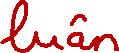 luân